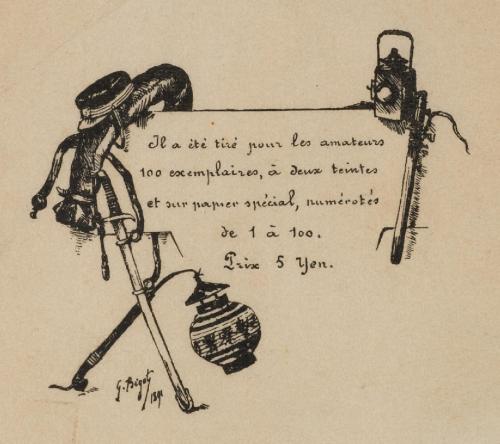 Il a été tiré pour les amateurs
100 exemplaires, à deux teintes
et sur papier spécial, numérotés
de 1 à 100.
Prix 5 Yen.
G. Bigot
1891